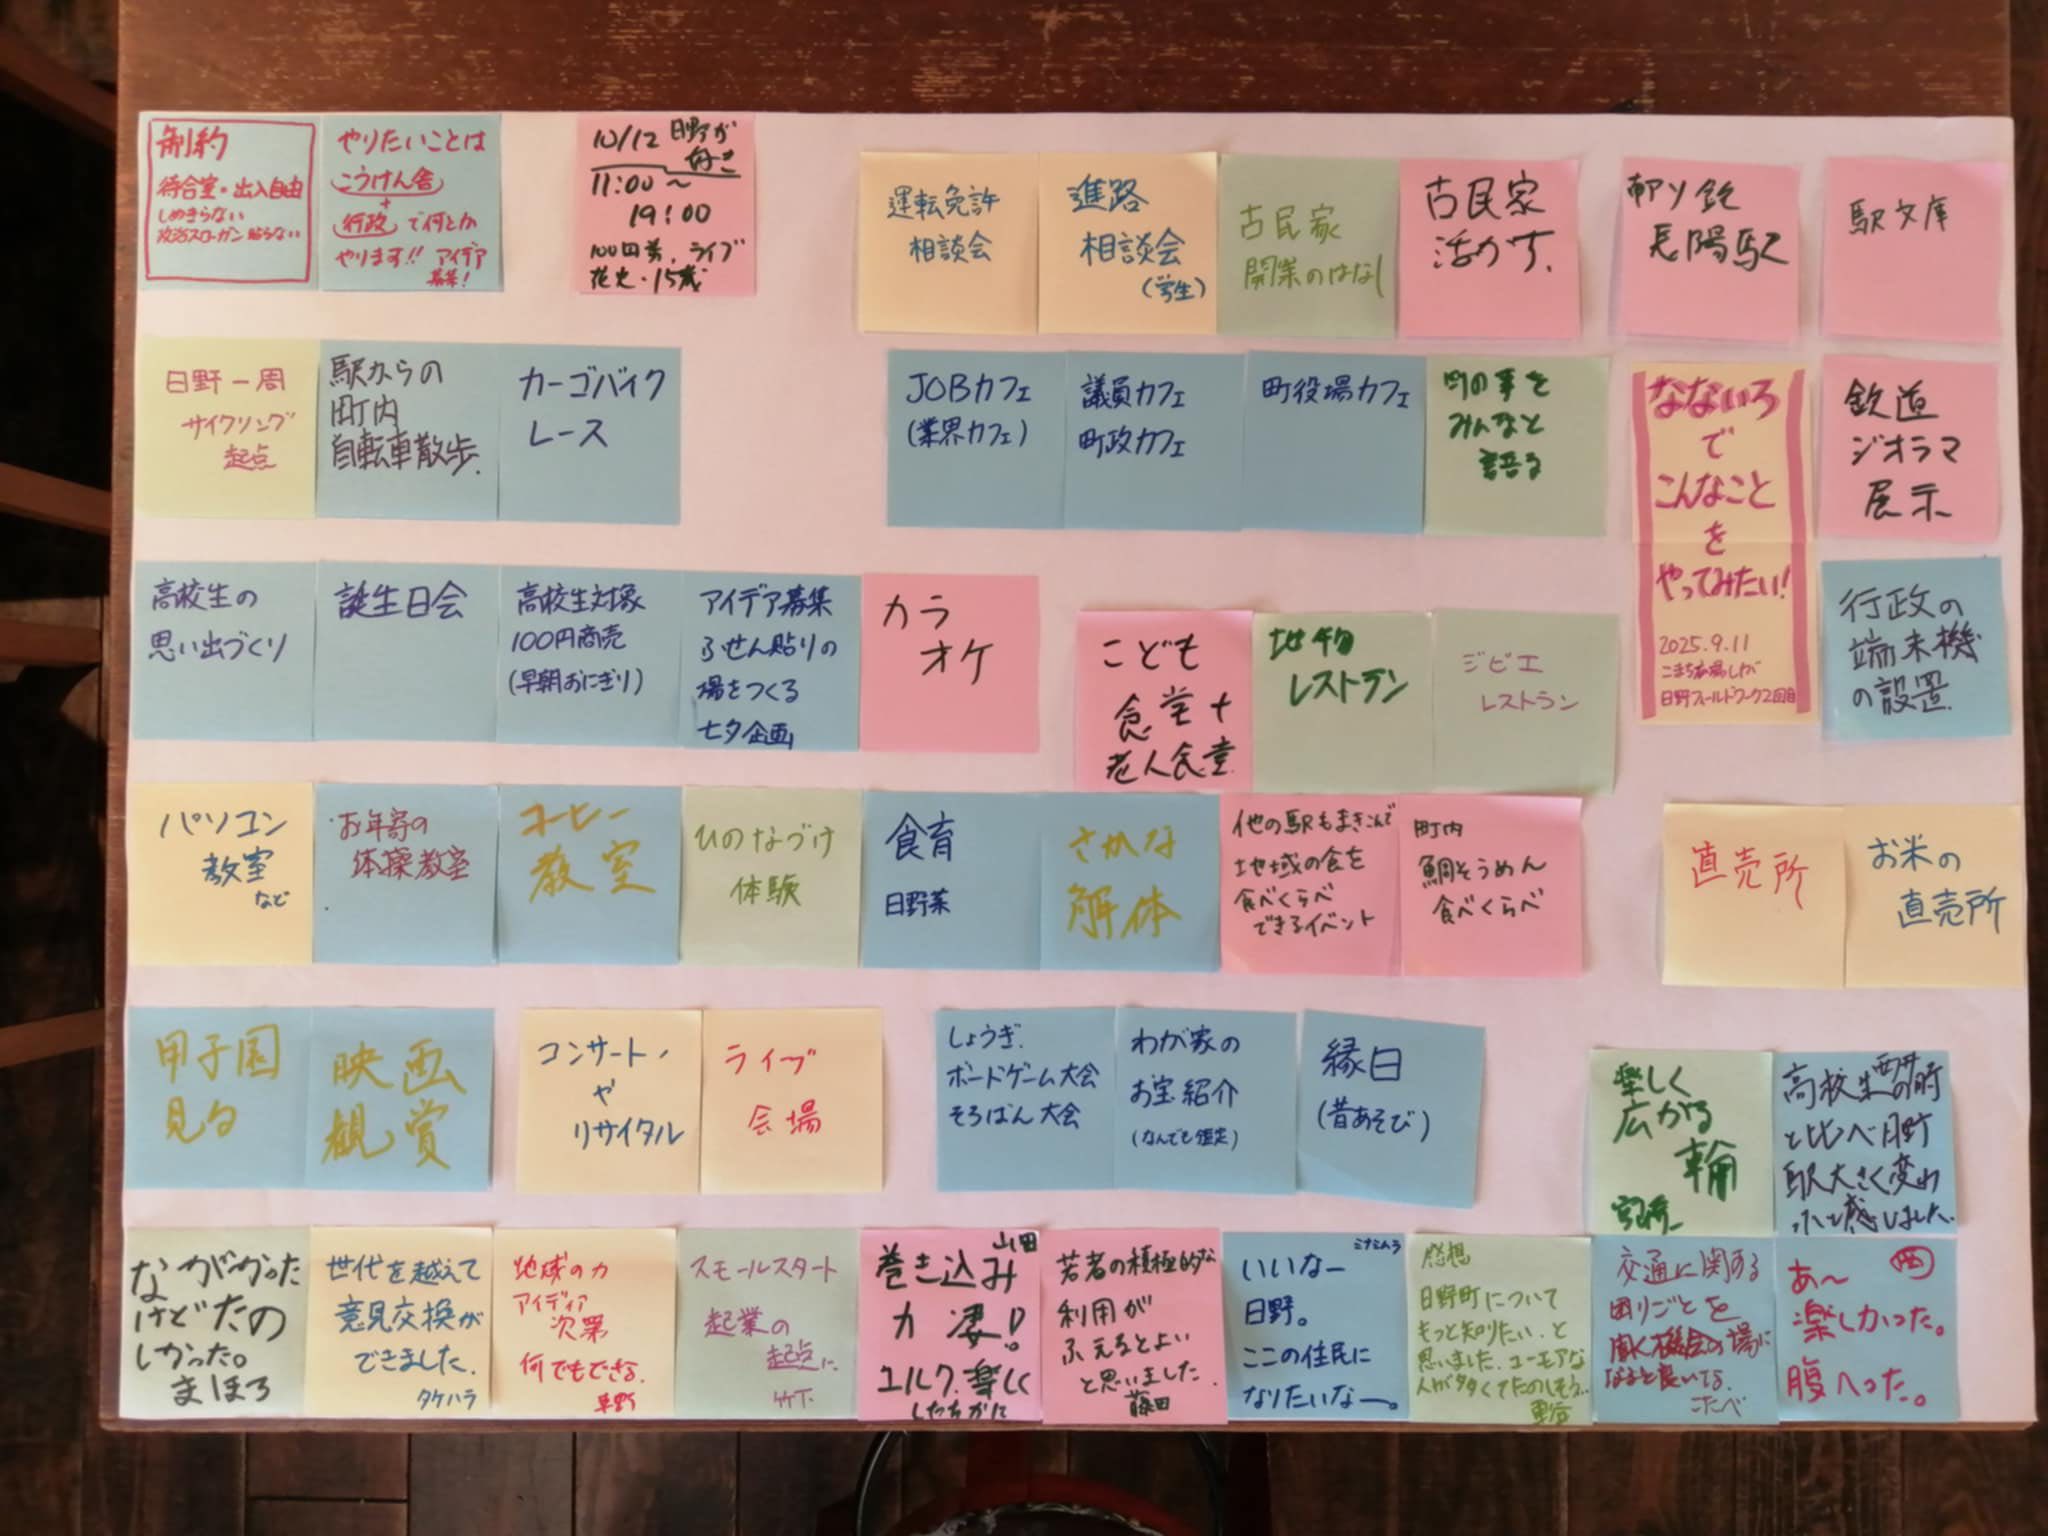 制約
待合室・出入自由
しめきらない
政治スローガン貼らない
やりたいことは
こうけん舎
+
行政で何とか
やります!! アイデア
募集!
10/12 日野が
11:00～
19:00
100円首、ライブ
花火・15歳
運転免許
相談会
進路
相談会
(学生)
古民家
開業のはなし
古民家
活かす.
長陽駅
駅文庫
日野一周
サイクリング
起点
駅からの
町内
自転車散歩.
カーゴバイク
レース
JOBカフェ
(業界カフェ)
議員カフェ
町政カフェ
町役場カフェ
町の事を
みんなと
語る
なないろ
で
こんなこと
を
やってみたい!
2025.9.11
日野フィールドワーク2回目
鉄道
ジオラマ
展示
高校生の
思い出づくり
誕生日会
高校生対象
100円商売
(早朝おにぎり)
アイデア募集
ふせん貼りの
場をつくる
七夕企画
カラ
オケ
こども
食堂+
老人食堂
地物
レストラン
ジビエ
レストラン
行政の
端末機
の設置
パソコン
教室
など
お年寄の
体操教室
コーヒー
教室
ひのなづけ
体験
食育
日野菜
さかな
解体
他の駅もまきこんで
地域の食を
食べくらべ
できるイベント
町内
鯛そうめん
食べくらべ
直売所
お米の
直売所
甲子園
見る
映画
観賞
コンサート
や
リサイタル
ライブ
会場
しょうぎ.
ボードゲーム大会
そろばん大会
わが家の
お宝紹介
(なんでも鑑定)
縁日
(昔あそび)
楽しく
広がる
輪
高校生の時
と比べ日野
駅大きく変わ
ったと感じました.
ながかった
けどたの
しかった。
まほろ
世代を越えて
意見交換が
できました.
タケハラ
地域の力
アイディア
次第
何でもできる.
草野
スモールスタート
起業の
起点に.
竹下
山田
巻き込み
力凄!
ユルク楽しく
したたかに
若者の積極的な
利用が
ふえるとよい
と思いました.
藤田
ミナミムラ
いいなー
日野。
ここの住民に
なりたいなー。
感想
日野町について
もっと知りたい.と
思いました.ユーモアな
人が多くてたのしそう..
重谷
交通に関する
困りごとを
聞く機会の場に
なると良いな
こたべ
あ～ 西
楽しかった。
腹へった。